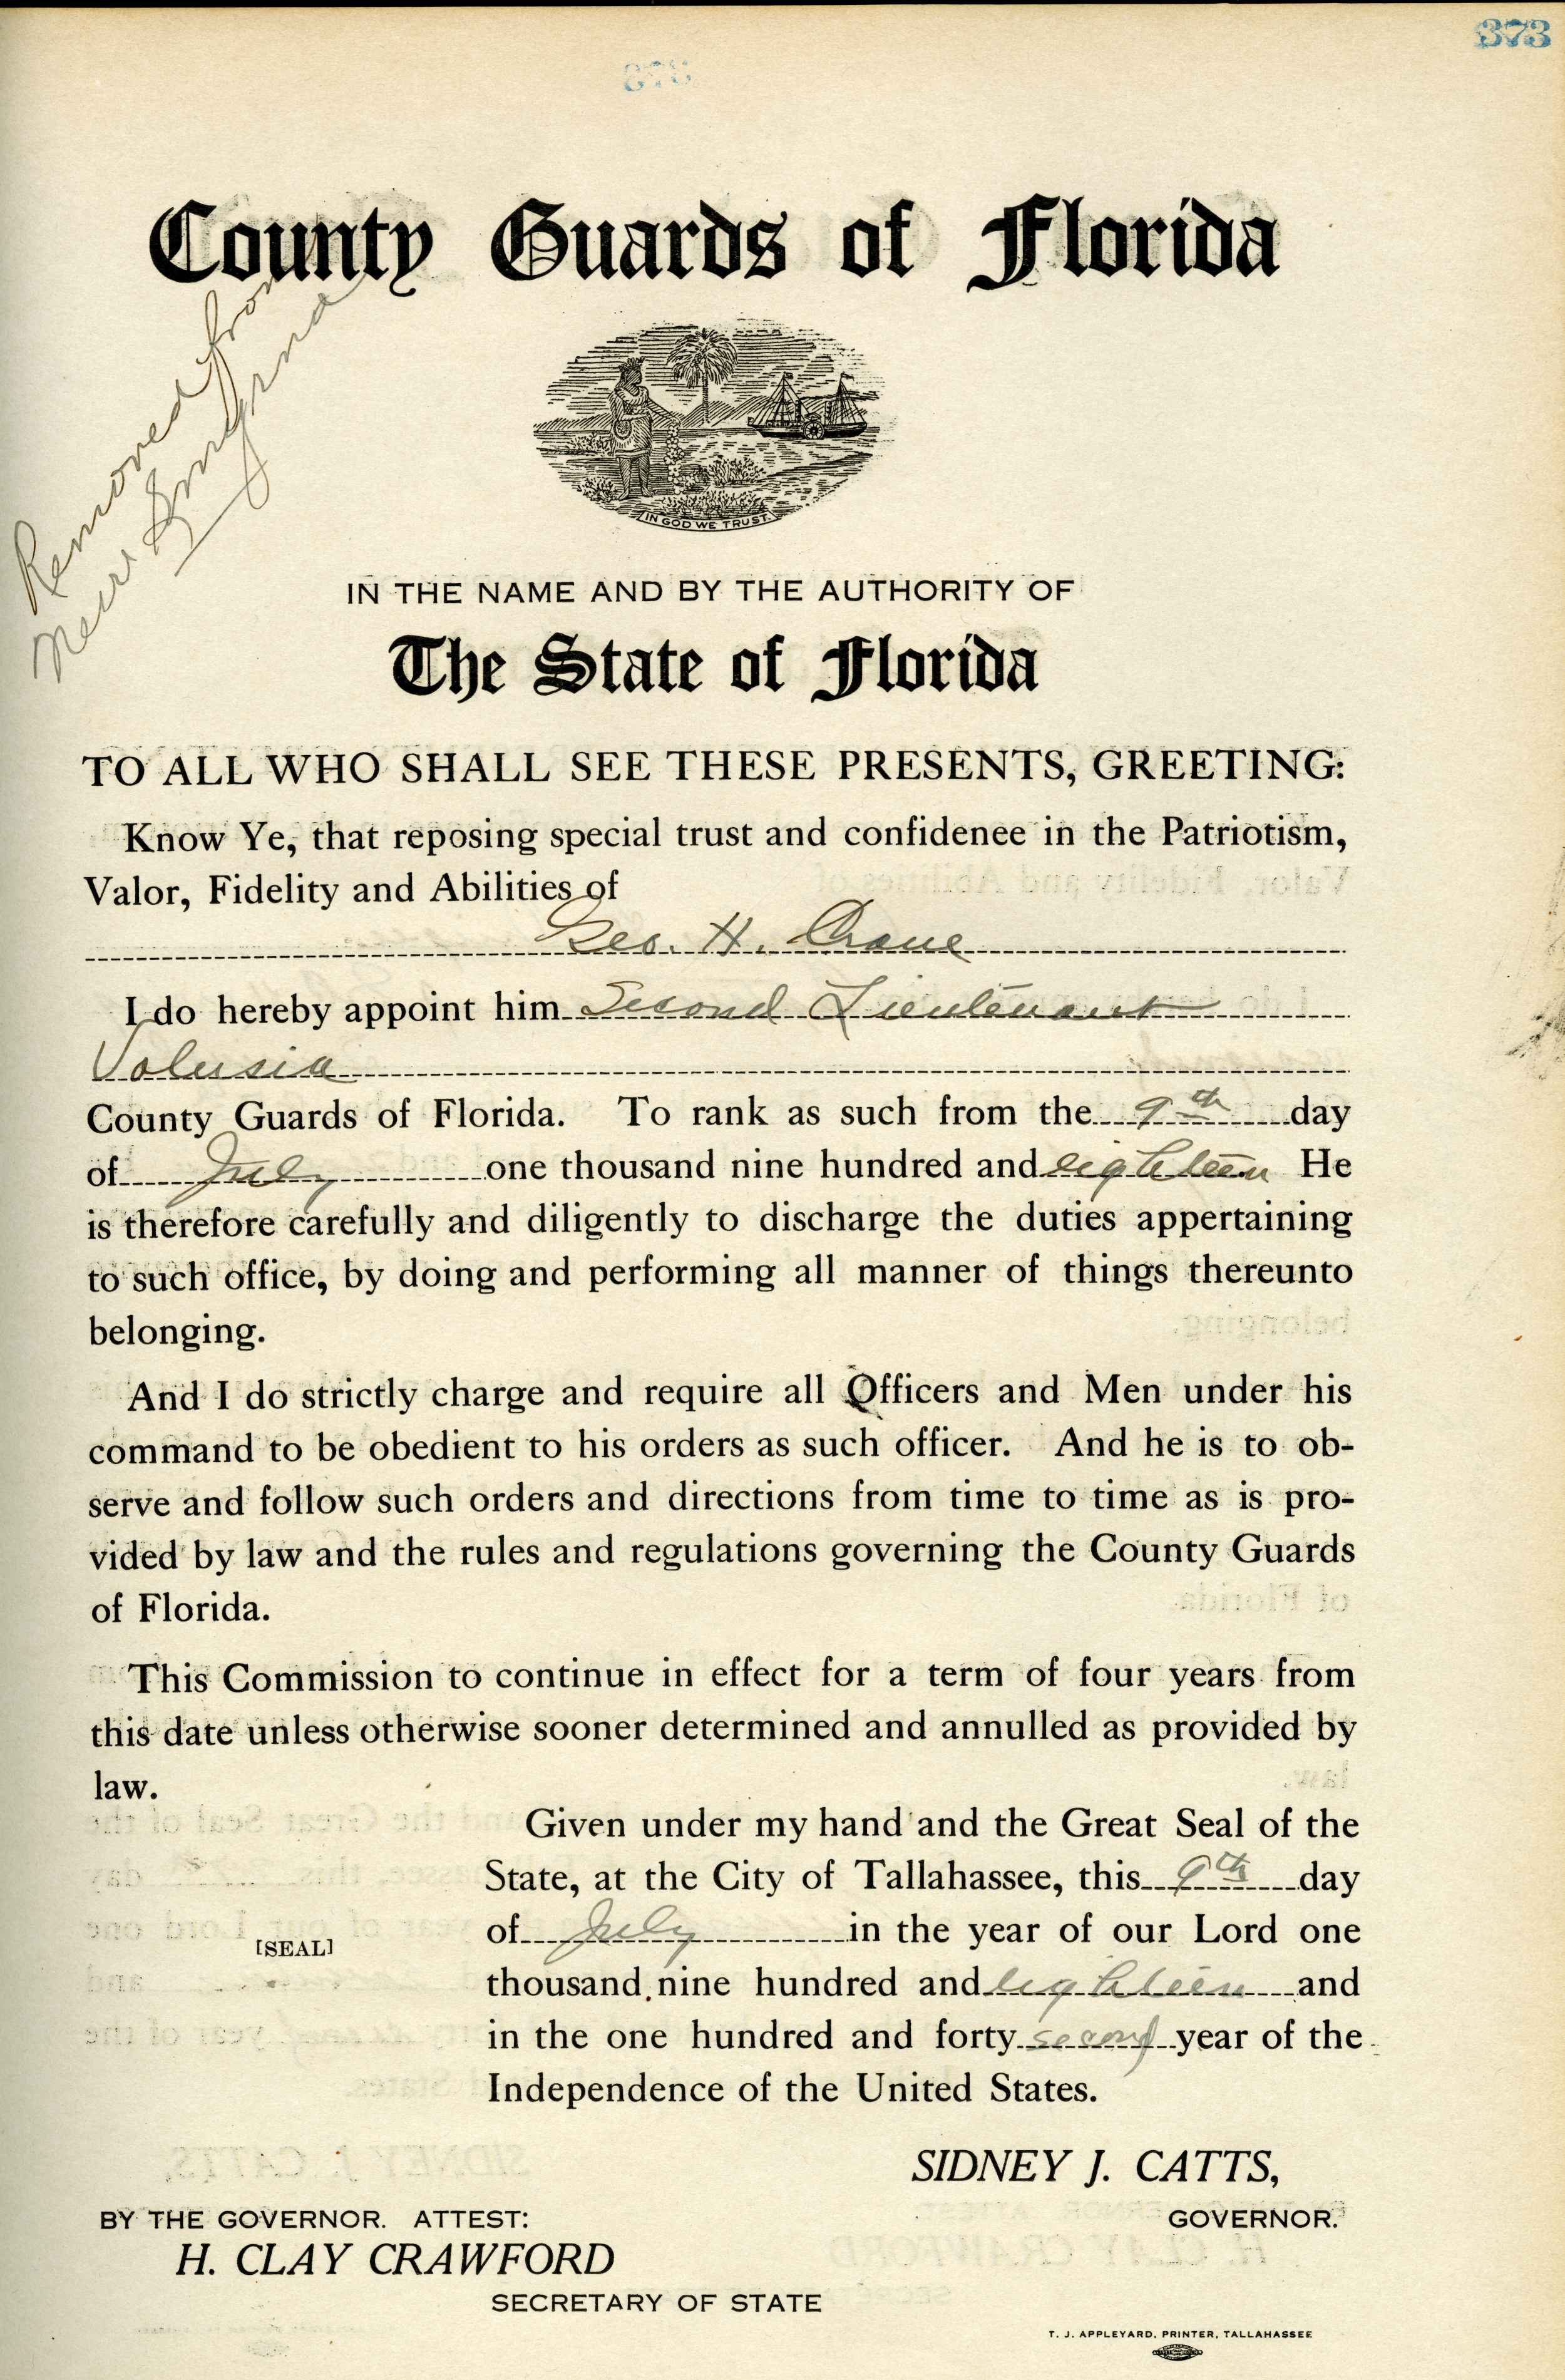 373
373
County Guards of Florida
Removed from
New Smyrna
IN GOD WE TRUST
IN THE NAME AND BY THE AUTHORITY OF
The State of Florida
TO ALL WHO SHALL SEE THESE PRESENTS, GREETING:
Know Ye, that reposing special trust and confidenee in the Patriotism,
Valor, Fidelity and Abilities of
Geo. H. Crane
I do hereby appoint him Second Lieutenant
Volusia
County Guards of Florida. To rank as such from the 9th day
of July one thousand nine hundred and eighteen He
is therefore carefully and diligently to discharge the duties appertaining
to such office, by doing and performing all manner of things thereunto
belonging.
And I do strictly charge and require all Officers and Men under his
command to be obedient to his orders as such officer. And he is to ob-
serve and follow such orders and directions from time to time as is pro-
vided by law and the rules and regulations governing the County Guards
of Florida.
This Commission to continue in effect for a term of four years from
this date unless otherwise sooner determined and annulled as provided by
law.
Given under my hand and the Great Seal of the
State, at the City of Tallahassee, this 9th day
of July in the year of our Lord one
[SEAL]
thousand nine hundred and eighteen and
in the one hundred and forty second year of the
Independence of the United States.
SIDNEY J. CATTS,
GOVERNOR.
BY THE GOVERNOR. ATTEST:
H. CLAY CRAWFORD
SECRETARY OF STATE
T. J. APPLEYARD, PRINTER, TALLAHASSEE